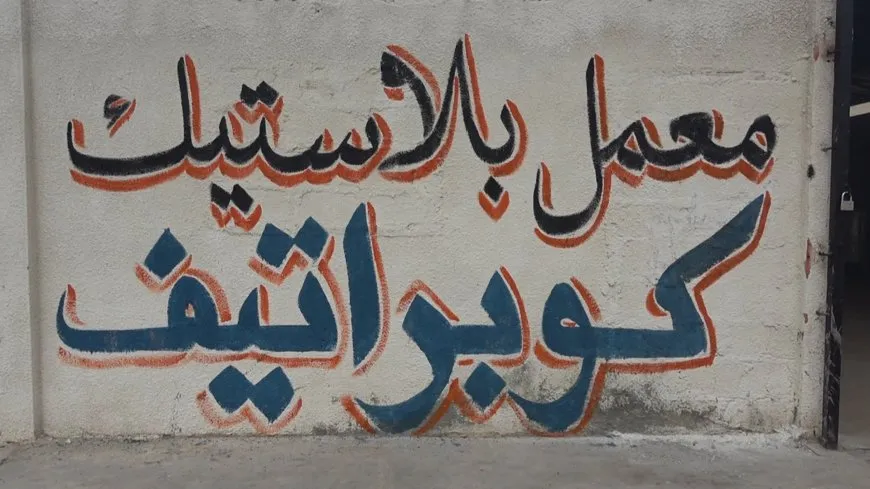 معمل بلاستيك
كوبراتيف